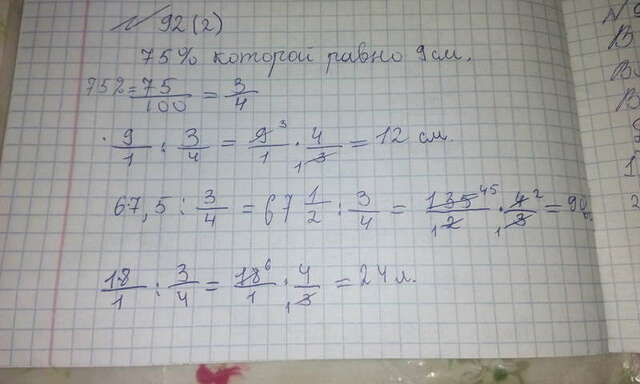 № 92 (2)
75% которой равно 9 см.
75% = 75/100 = 3/4
9/1 : 3/4 = 9 3/1 · 4/1 3 = 12 см.
67,5 : 3/4 = 67 1/2 : 3/4 = 135 45/1 2 · 4 2/1 3 = 90
18/1 : 3/4 = 18 6/1 · 4/1 3 = 24 л.